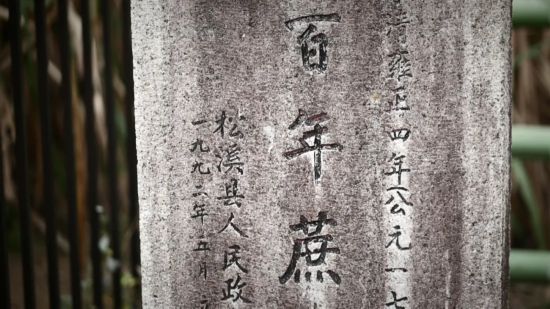 清雍正四年(公元一七
百年蔗
松溪县人民政
一九九二年五月